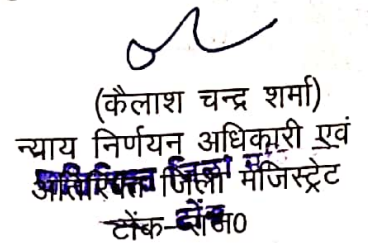 (कैलाश चन्द्र शर्मा)
न्याय निर्णयन अधिकारी एवं
अतिरिक्त जिला मजिस्ट्रेट
टोंक-राज0